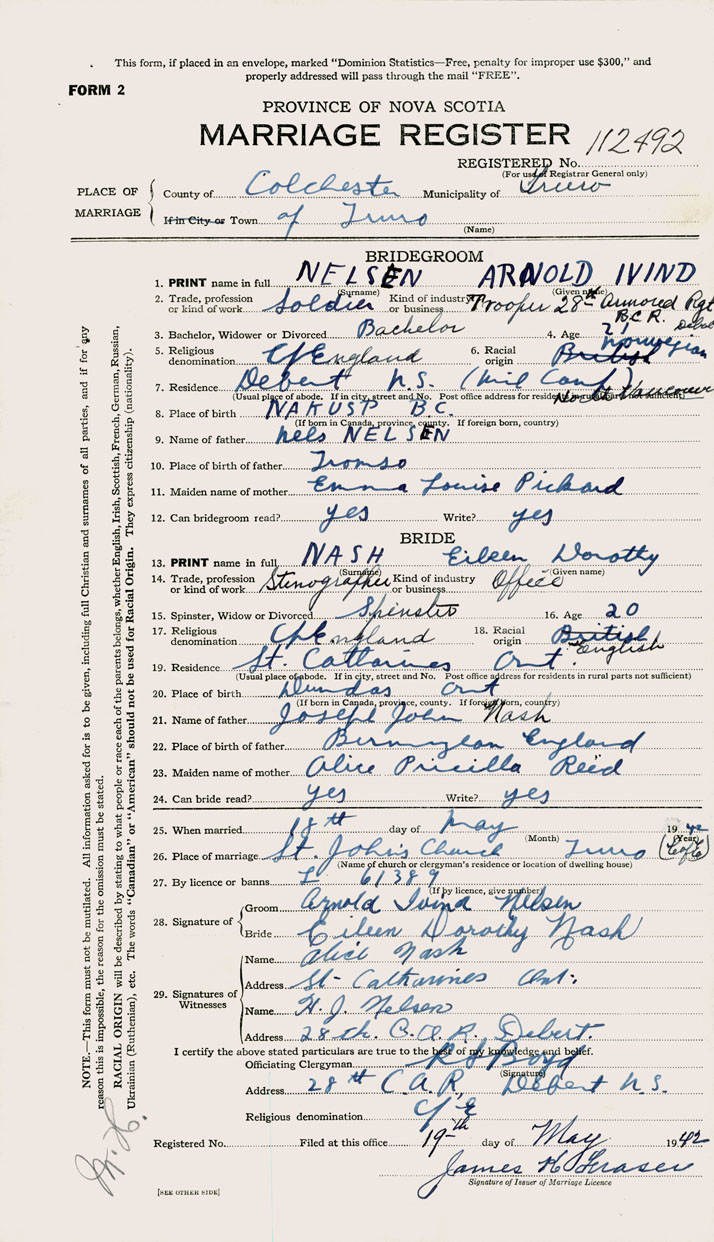 This form, if placed in an envelope, marked "Dominion Statistics—Free, penalty for improper use $300," and
properly addressed will pass through the mail "FREE".
FORM 2
PROVINCE OF NOVA SCOTIA
MARRIAGE REGISTER
112492
REGISTERED No.
(For use of Registrar General only)
PLACE OF MARRIAGE
County of Colchester Municipality of Truro
If in City or Town of Truro
(Name)
BRIDEGROOM
1. PRINT name in full NELSEN ARNOLD IVIND
(Surname) (Given name)
2. Trade, profession or kind of work Soldier Kind of industry or business Trooper 28th Armored Rgt
B.C.R. Debert
3. Bachelor, Widower or Divorced Bachelor 4. Age 21
5. Religious denomination C of England 6. Racial origin British Norwegian
7. Residence Debert N.S. (Mil Camp) North Vancouver
(Usual place of abode. If in city, street and No. Post office address for residents in rural parts not sufficient)
8. Place of birth NAKUSP B.C.
(If born in Canada, province, county. If foreign born, country)
9. Name of father Nels NELSEN
10. Place of birth of father Tromso
11. Maiden name of mother Emma Louise Pickard
12. Can bridegroom read? yes Write? yes
BRIDE
13. PRINT name in full NASH Eileen Dorothy
(Surname) (Given name)
14. Trade, profession or kind of work Stenographer Kind of industry or business Office
15. Spinster, Widow or Divorced Spinster 16. Age 20
17. Religious denomination C of England 18. Racial origin British English
19. Residence St. Catharines Ont.
(Usual place of abode. If in city, street and No. Post office address for residents in rural parts not sufficient)
20. Place of birth Dundas Ont
(If born in Canada, province, county. If foreign born, country)
21. Name of father Joseph John Nash
22. Place of birth of father Birmingham England
23. Maiden name of mother Alice Pricilla Reed
24. Can bride read? yes Write? yes
25. When married 18th day of May 1942
(Month) (Year)
26. Place of marriage St. John's Church Truro (C of E)
(Name of church or clergyman's residence or location of dwelling house)
27. By licence or banns L 61389
(If by licence, give number)
28. Signature of
Groom Arnold Ivind Nelsen
Bride Eileen Dorothy Nash
29. Signatures of Witnesses
Name Alice Nash
Address St. Catharines Ont.
Name H. J. Nelsen
Address 28th C.A.R. Debert.
I certify the above stated particulars are true to the best of my knowledge and belief.
Officiating Clergyman R S Boyd
(Signature)
Address 28th C.A.R. Debert N.S.
Religious denomination C of E
Registered No. Filed at this office 19th day of May 1942
James H Fraser
Signature of Issuer of Marriage Licence
[SEE OTHER SIDE]
NOTE.—This form must not be mutilated. All information asked for is to be given, including full Christian and surnames of all parties, and if for any
reason this is impossible, the reason for the omission must be stated.
RACIAL ORIGIN will be described by stating to what people or race each of the parents belongs, whether English, Irish, Scottish, French, German, Russian,
Ukrainian (Ruthenian), etc. The words "Canadian" or "American" should not be used for Racial Origin. They express citizenship (nationality).